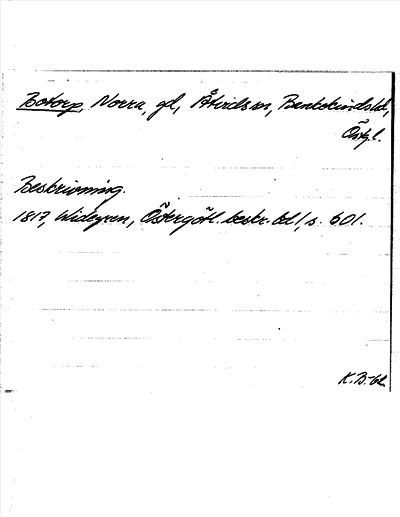 Botorp, Norra, gd, Åtvids sn, Bankekinds hd,
Östgl.
Beskrivning.
1817, Widegren, Östergötl. beskr. bd 1, s. 601.
K.B-bl.